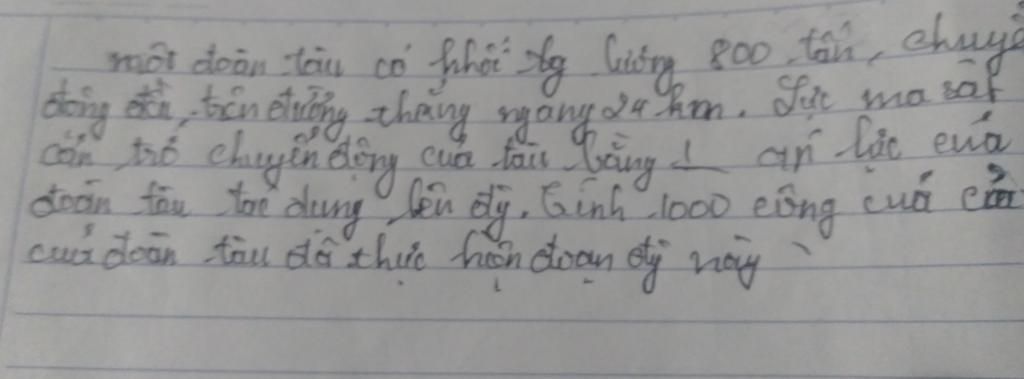 một đoàn tàu có khối tg lượng 800 tấn, chuyể
động đều, trên đường thẳng ngang 24 km. Lực ma sát
cản trở chuyển động của tàu bằng 1 áp lực của
đoàn tàu tác dụng lên đg. Tính 1000 công cuả cản
cuả đoàn tàu để thực hiện đoạn đg này